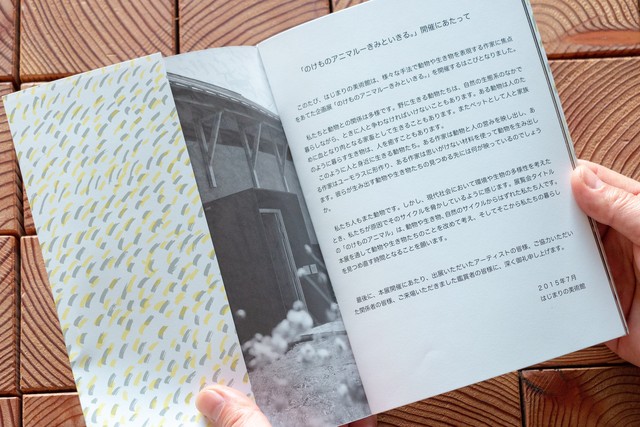 「のけものアニマルーきみといきる。」開催にあたって
このたび、はじまりの美術館は、様々な手法で動物や生き物を表現する作家に焦点
をあてた企画展「のけものアニマルーきみといきる。」を開催するはこびとなりました。
私たちと動物との関係は多様です。野に生きる動物たちは、自然の生態系のなかで
暮らしながら、ときに人と争わなければいけないこともあります。ある動物は人のた
めに血となり肉となる家畜として生きることもあります。またペットとして人と家族
のように暮らす生き物は、人を癒すこともあります。
このように人と身近に生きる動物たち。ある作家は動物と人の営みを映し出し、あ
る作家はユーモラスに形作り、ある作家は思いがけない材料を使って動物を生み出し
ます。彼らが生み出す動物や生き物たちの見つめる先には何が映っているのでしょう
か。
私たち人もまた動物です。しかし、現代社会において環境や生物の多様性を考えた
とき、私たちが原因でそのサイクルを脅かしているように感じます。展覧会タイトル
の「のけものアニマル」は、動物や生き物、自然のサイクルからはずれた私たち人です。
本展を通して動物や生き物たちのことを改めて考え、そしてそこから私たちの暮らし
を見つめ直す時間となることを願います。
最後に、本展開催にあたり、出展いただいたアーティストの皆様、ご協力いただい
た関係者の皆様、ご来場いただきました鑑賞者の皆様に、深く御礼申し上げます。
2015年7月
はじまりの美術館